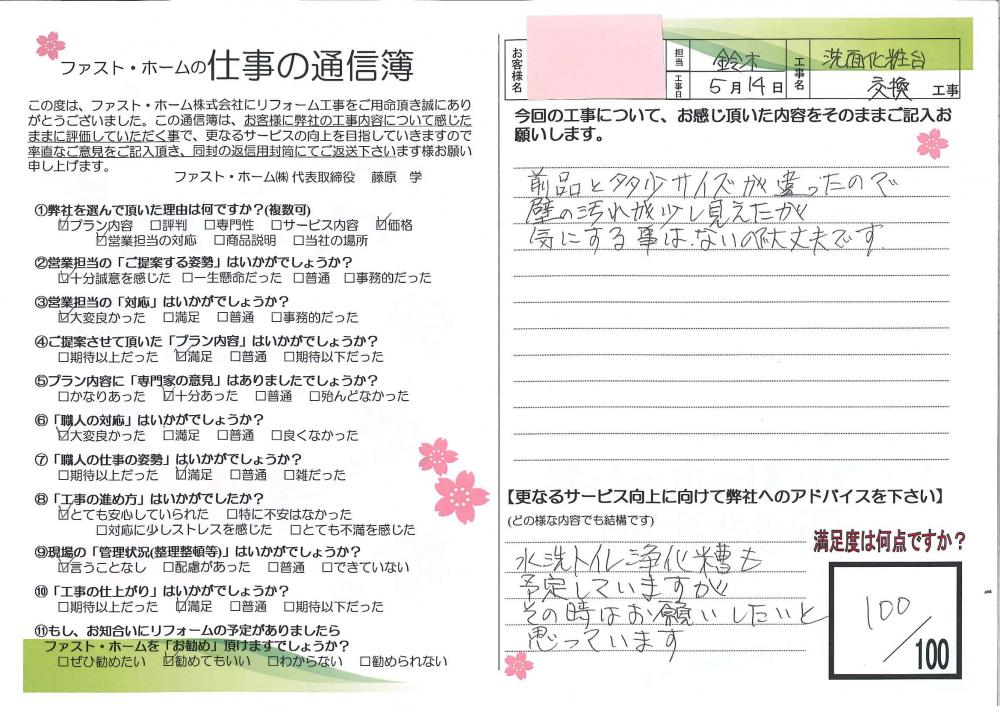 ファスト・ホームの仕事の通信簿
この度は、ファスト・ホーム株式会社にリフォーム工事をご用命頂き誠にあり
がとうございました。この通信簿は、お客様に弊社の工事内容について感じた
ままに評価していただく事で、更なるサービスの向上を目指していきますので
率直なご意見をご記入頂き、同封の返信用封筒にてご返送下さいます様お願い
申し上げます。
ファスト・ホーム㈱ 代表取締役 藤原 学
①弊社を選んで頂いた理由は何ですか?(複数可)
☑プラン内容 □評判 □専門性 □サービス内容 ☑価格
☑営業担当の対応 □商品説明 □当社の場所
②営業担当の「ご提案する姿勢」はいかがでしょうか?
☑十分誠意を感じた □一生懸命だった □普通 □事務的だった
③営業担当の「対応」はいかがでしょうか?
☑大変良かった □満足 □普通 □事務的だった
④ご提案させて頂いた「プラン内容」はいかがでしょうか?
□期待以上だった ☑満足 □普通 □期待以下だった
⑤プラン内容に「専門家の意見」はありましたでしょうか?
□かなりあった ☑十分あった □普通 □殆んどなかった
⑥「職人の対応」はいかがでしょうか?
☑大変良かった □満足 □普通 □良くなかった
⑦「職人の仕事の姿勢」はいかがでしょうか?
□期待以上だった ☑満足 □普通 □雑だった
⑧「工事の進め方」はいかがでしたか?
☑とても安心していられた □特に不安はなかった
□対応に少しストレスを感じた □とても不満を感じた
⑨現場の「管理状況(整理整頓等)」はいかがでしょうか?
☑言うことなし □配慮があった □普通 □できていない
⑩「工事の仕上がり」はいかがでしょうか?
□期待以上だった ☑満足 □普通 □期待以下だった
⑪もし、お知合いにリフォームの予定がありましたら
ファスト・ホームを「お勧め」頂けますでしょうか?
□ぜひ勧めたい ☑勧めてもいい □わからない □勧められない
お客様名
担当 鈴木
工事日 5月14日
工事名 洗面化粧台
交換 工事
今回の工事について、お感じ頂いた内容をそのままご記入お
願いします。
前品と多少サイズが違ったので
壁の汚れが少し見えたが
気にする事はないので大丈夫です
【更なるサービス向上に向けて弊社へのアドバイスを下さい】
(どの様な内容でも結構です)
水洗トイレ浄化糟も
予定していますが
その時はお願いしたいと
思っています
満足度は何点ですか?
100/100